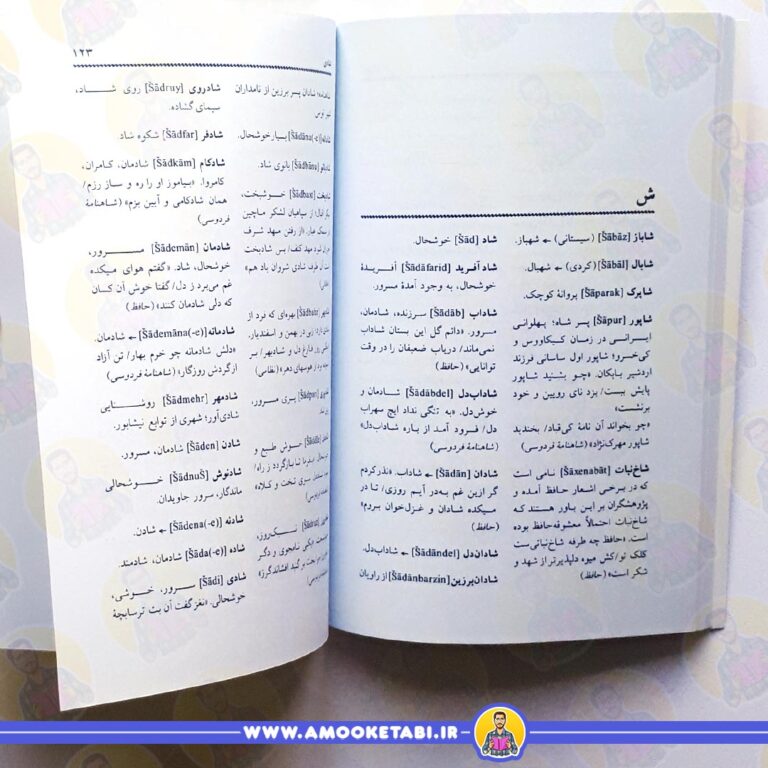 ش
شاباز [Šābāz] (سیستانی) ← شهباز.
شابال [Šābāl] (کردی) ← شهبال.
شاپرک [Šāparak] پروانهٔ کوچک.
شاپور [Šāpur] پسر شاه؛ پهلوانی
ایرانی در زمان کیکاووس و
کی‌خسرو؛ شاپور اول ساسانی فرزند
اردشیر بابکان. «چو بشنید شاپور
پایش ببست/ بزد نای رویین و خود
برنشت»
«چو بخواند آن نامهٔ کی‌قباد/ بخندید
شاپور مهرک‌نژاد» (شاهنامهٔ فردوسی)
شاخ‌نبات [Šāxenabāt] نامی است
که در برخی اشعار حافظ آمده و
پژوهشگران بر این باور هستند که
شاخ‌نبات احتمالاً معشوقه‌حافظ بوده
است. «حافظ چه طرفه شاخ‌نباتی‌ست
کلک تو/کش میوه دلپذیرتر از شهد و
شکر است» (حافظ)
شاد [Šād] خوشحال.
شاد آفرید [Šādāfarid] آفریدهٔ
خوشحال، به وجود آمدهٔ مسرور.
شاداب [Šādāb] سرزنده، شادمان،
مسرور. «دائم گل این بستان شاداب
نمی‌ماند/ دریاب ضعیفان را در وقت
توانایی» (حافظ)
شاداب‌دل [Šādābdel] شادمان و
خوش‌دل. «به تنگی نداد ایچ سهراب
دل/ فرود آمد از باره شاداب‌دل»
(شاهنامهٔ فردوسی)
شادان [Šādān] ← شاداب. «نذرکردم
گر ازین غم به‌در آیم روزی/ تا در
میکده شادان و غزل‌خوان بروم»
(حافظ)
شادان‌دل [Šādāndel] ← شاداب‌دل.
شادان‌برزین [Šādānbarzin] از راویان
شادی
۱۲۳
شاهنامه؛ شادان پسر برزین از نامداران
شهر توس.
[Šādāna(-e)] بسیار خوشحال.
[Šādbānu] بانوی شاد.
[Šādbaxt] خوشبخت،
از سپاهیان لشکر ماچین
«از رفتن مهد شرف
مهد کف/ بس شادبخت
آن طرف شادی شروان باد هم»
[Šādbahr] بهره‌ای که فرد از
در بهمن و اسفندیار.
فارغ دل و شادبهر/ بر
دهر» (نظامی)
[Šādpari] پری مسرور،
خوش طبع و
بازگردد ز راه/
سری تخت و کلاه»
نیک‌روز،
نامجوی و دگر
بر گنبد افشاندگرز»
شادروی [Šādruy] روی شاد،
سیمای گشاده.
شادفر [Šādfar] شکوه شاد.
شادکام [Šādkām] شادمان، کامران،
کامروا. «بیاموز او را ره و ساز رزم/
همان شادکامی و آیین بزم» (شاهنامهٔ
فردوسی)
شادمان [Šādemān] مسرور،
خوشحال، شاد. «گفتم هوای میکده
غم می‌برد ز دل/ گفتا خوش آن کسان
که دلی شادمان کنند» (حافظ)
شادمانه [Šādemāna(-e)] ← شادمان.
«دلش شادمانه چو خرم بهار/ تن آزاد
ازگردش روزگار» (شاهنامهٔ فردوسی)
شادمهر [Šādmehr] روشنایی
شادی‌آور؛ شهری از توابع نیشابور.
شادن [Šāden] شادمان، مسرور.
شادنوش [Šādnuš] خوشحالی
ماندگار، سرور جاویدان.
شادنه [Šādena(-e)] ← شادن.
شاده [Šāda(-e)] شادمان، شادمند.
شادی [Šādi] سرور، خوشی،
خوشحالی. «نغز گفت آن بت ترسابچهٔ
WWW.AMOOKETABI.IR